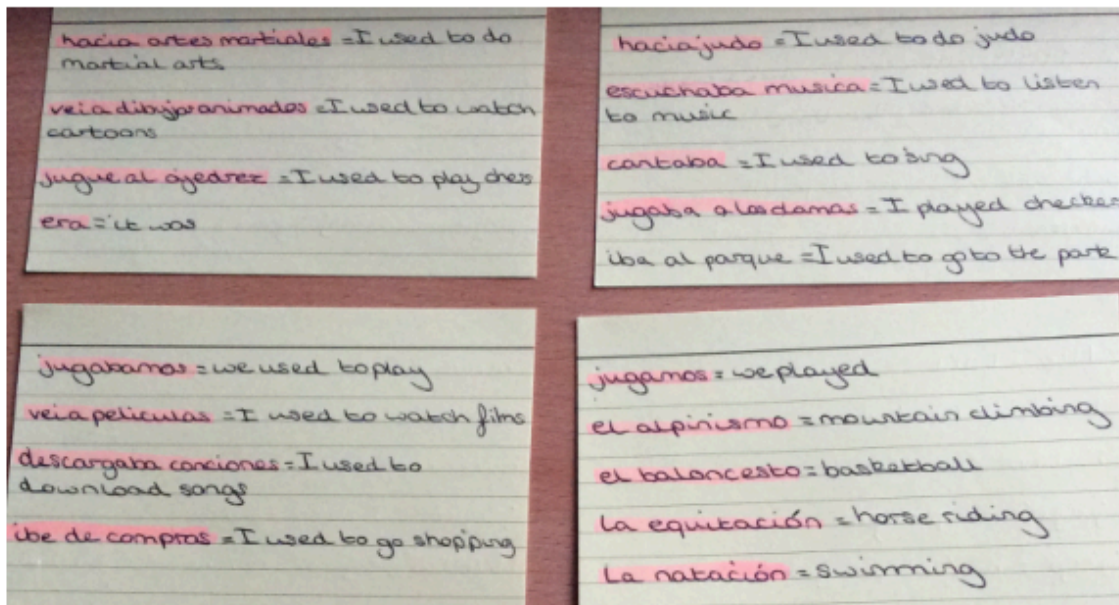 hacia artes martiales = I used to do
martial arts.
veia dibujos animados = I used to watch
cartoons
jugue al ajedrez = I used to play chess
era = it was
hacia judo = I used to do judo
escuchaba musica = I used to listen
to music
cantaba = I used to sing
jugaba a las damas = I played checkers
iba al parque = I used to go to the park
jugabamos = we used to play
veia peliculas = I used to watch films
descargaba canciones = I used to
download songs
iba de compras = I used to go shopping
jugamos = we played
el alpinismo = mountain climbing
el baloncesto = basketball
la equitación = horse riding
la natación = swimming